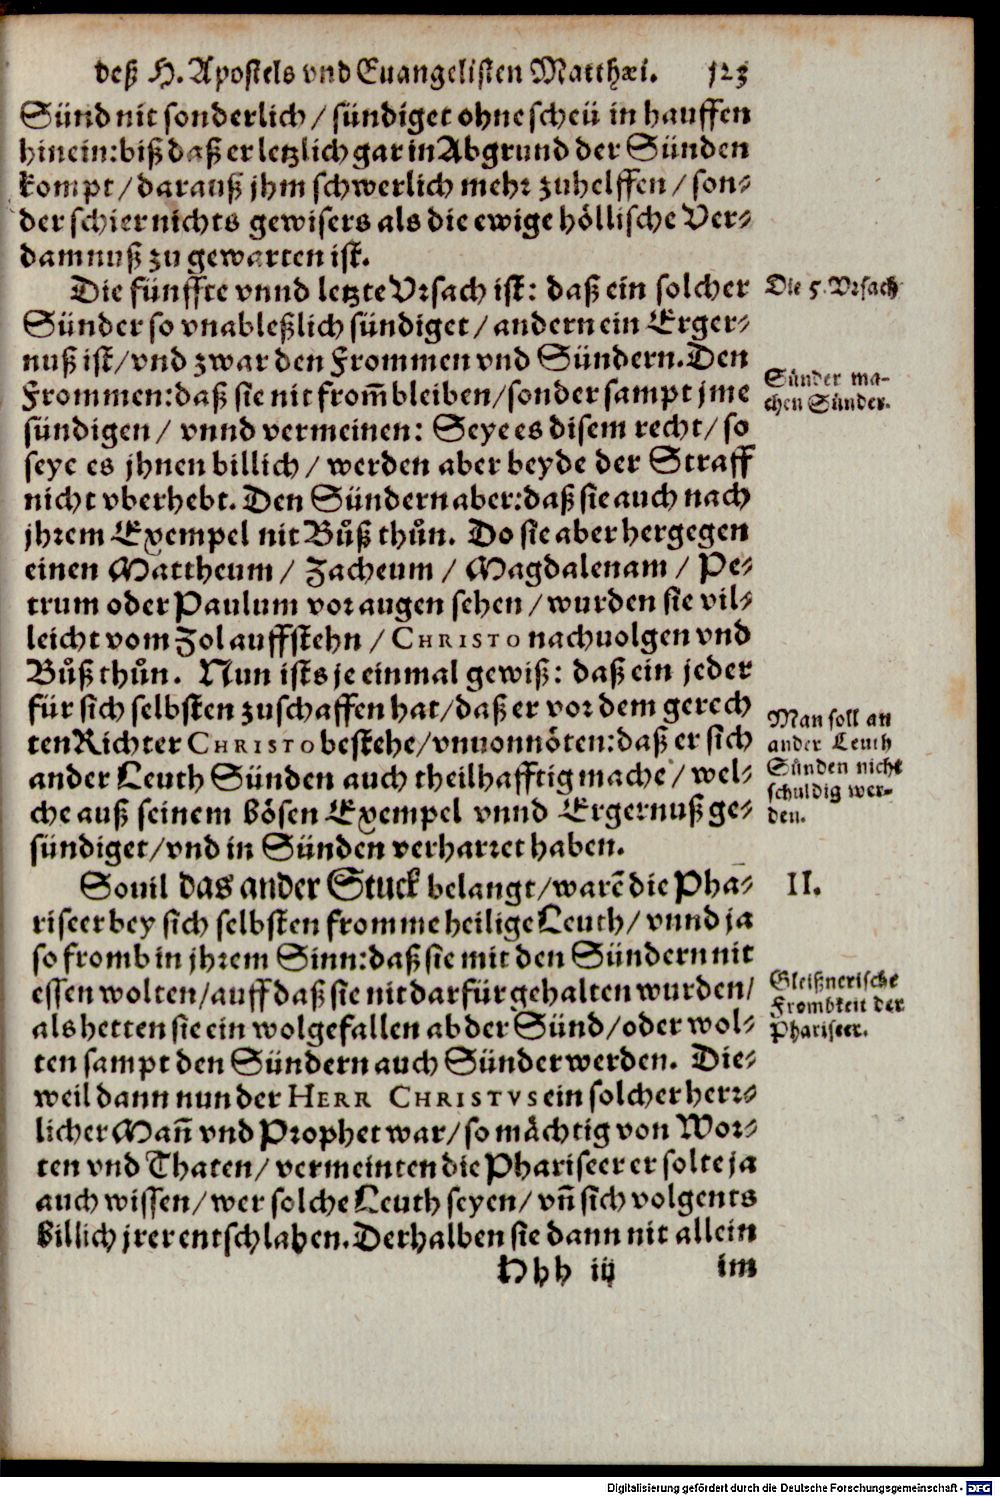 deß H. Apostels vnd Euangelisten Matthæi. 523
Sünd nit sonderlich / sündiget ohne scheü in hauffen
hinein: biß daß er letzlich gar in Abgrund der Sünden
kompt / darauß jhm schwerlich mehr zuhelffen / son⸗
der schier nichts gewisers als die ewige höllische Ver⸗
damnuß zu gewarten ist.
Die fünffte vnnd letzte Vrsach ist: daß ein solcher
Die 5. Vrsach
Sünder so vnableßlich sündiget / andern ein Erger⸗
nuß ist / vnd zwar den Frommen vnd Sündern. Den
Frommen: daß sie nit from̃ bleiben / sonder sampt jme
Sünder ma-
chen Sünder.
sündigen / vnnd vermeinen: Seye es disem recht / so
seye es jhnen billich / werden aber beyde der Straff
nicht vberhebt. Den Sündern aber: daß sie auch nach
jhrem Exempel nit Bůß thůn. Do sie aber hergegen
einen Mattheum / Zacheum / Magdalenam / Pe⸗
trum oder Paulum vor augen sehen / wurden sie vil⸗
leicht vom Zol auffstehn / CHRISTO nachuolgen vnd
Bůß thůn. Nun ists je einmal gewiß: daß ein jeder
für sich selbsten zuschaffen hat / daß er vor dem gerech
ten Richter CHRISTO bestehe / vnuonnöten: daß er sich
ander Leuth Sünden auch theilhafftig mache / wel⸗
che auß seinem bösen Exempel vnnd Ergernuß ge⸗
sündiget / vnd in Sünden verharret haben.
Man soll an
ander Leuth
Sünden nicht
schuldig wer-
den.
Souil das ander Stuck belangt / warẽ die Pha⸗
II.
riseer bey sich selbsten fromme heilige Leuth / vnnd ja
so fromb in jhrem Sinn: daß sie mit den Sündern nit
essen wolten / auff daß sie nit darfür gehalten wurden /
als hetten sie ein wolgefallen ab der Sünd / oder wol⸗
ten sampt den Sündern auch Sünder werden. Die⸗
Gleißnerische
Frombkeit der
Phariseer.
weil dann nun der HERR CHRISTVS ein solcher herr⸗
licher Mañ vnd Prophet war / so mächtig von Wor⸗
ten vnd Thaten / vermeinten die Phariseer er solte ja
auch wissen / wer solche Leuth seyen / vñ sich volgents
billich jrer entschlahen. Derhalben sie dann nit allein
Hhh iij im
Digitalisierung gefördert durch die Deutsche Forschungsgemeinschaft - DFG